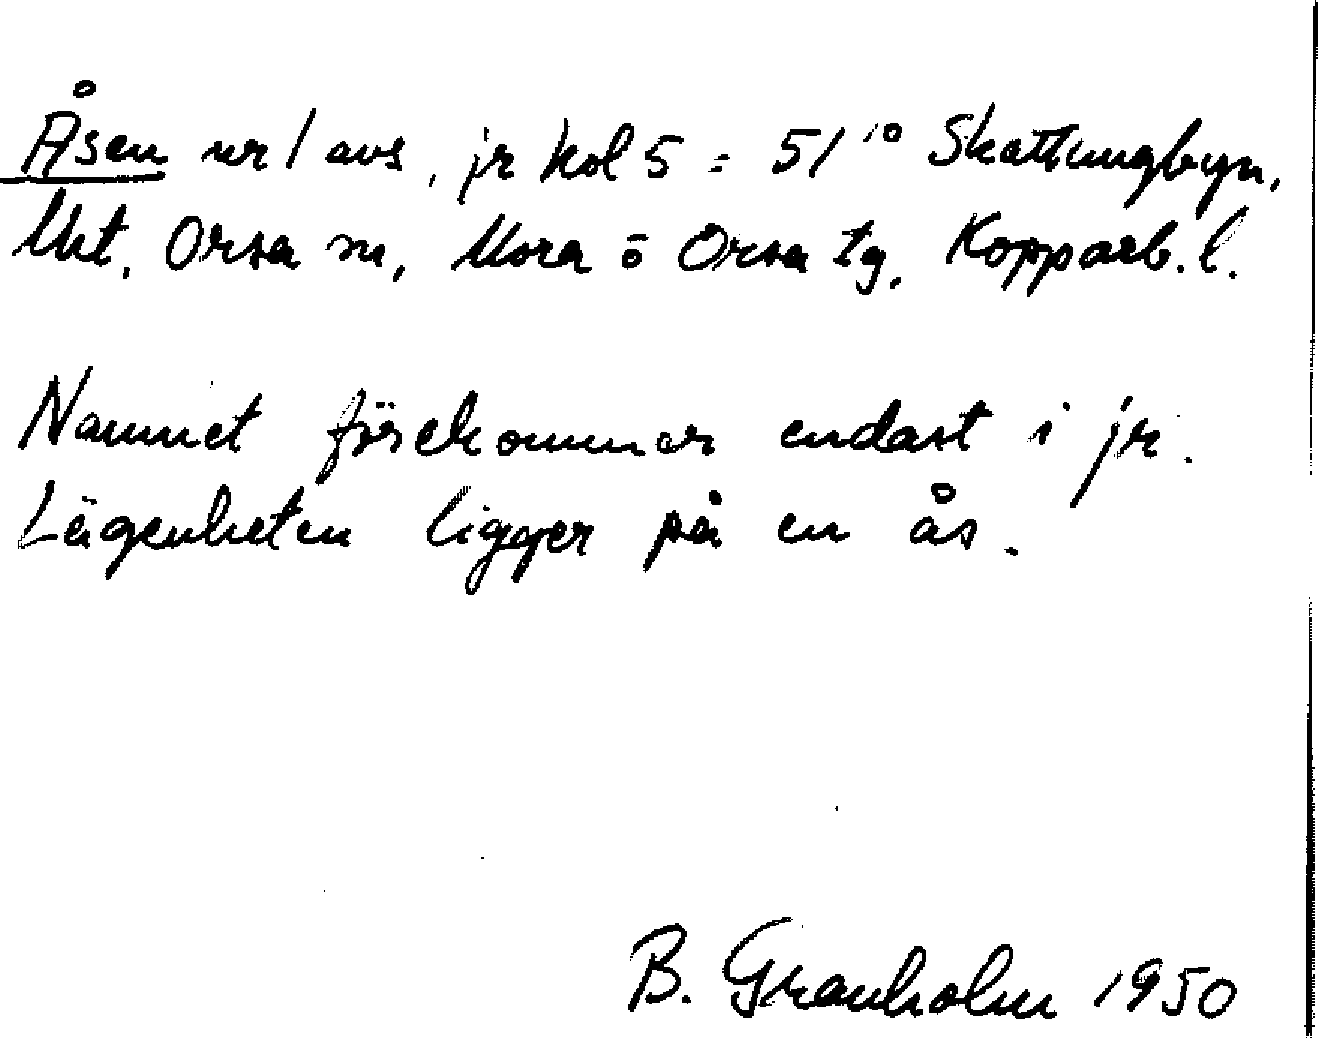 Åsen nr 1 avs, jr kol 5 = 51¹⁰ Skattungbyn,
Orsa sn, Mora o Orsa tg, Kopparb. l.
Namnet förekommer endast i jr.
Lägenheten ligger på en ås.
B. Granholm 1950